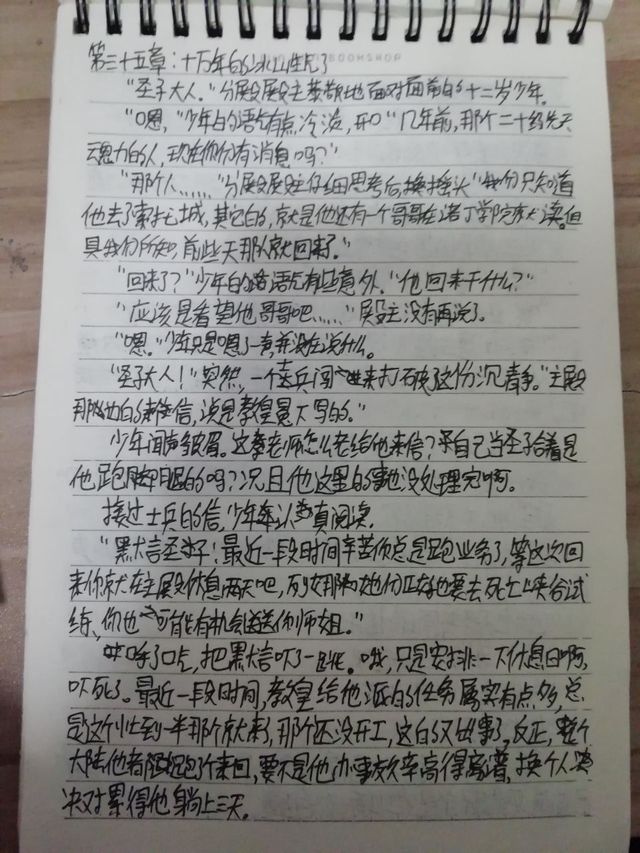 第三十五章：十万年的冰山性尸了
BOOKSHOP
“圣子大人。”分殿殿主恭敬地面对面前的十二岁少年。
“嗯，”少年的语气有点冷淡，开口“几年前，那个二十级先天
魂力的人，现在你们有消息吗？”
“那个人……”分殿殿主仔细思考后摇摇头“我们只知道
他去了索托城，其它的，就是他还有一个哥哥在诺丁学院读。但
具我们所知，前些天那人就回来了。”
“回来了？”少年的语气有些意外。“他回来干什么？”
“应该是看望他哥哥吧……”殿主没有再说了。
“嗯。”少年只是嗯了一声，并没在说什么。
“圣子大人！”突然，一个士兵闯进来打破了这份沉静。“主殿
那边的来信，说是教皇冕下写的。”
少年闻声皱眉。这老师怎么老给他来信？自己当圣子给着是
他跑脚腿的吗？况且他这里的事也没处理完啊。
接过士兵的信，少年认真阅读。
“黑大言圣子！最近一段时间辛苦你总是跑业务了，等这次回
来你就在主殿休息两天吧，那她们正好也要去死亡峡谷试
练，你也可能有机会送送你师姐。”
呼了口气，把黑大言吓了一跳。哦，只是安排一下休息日啊，
吓死了。最近一段时间，教皇给他派的任务属实有点多，总
是这个忙到一半那个就来，那个还没开工，这的又出事了，反正，整个
大陆他都跑了个来回，要不是他办事效率高得离谱，换个人
决对累得他躺上三天。